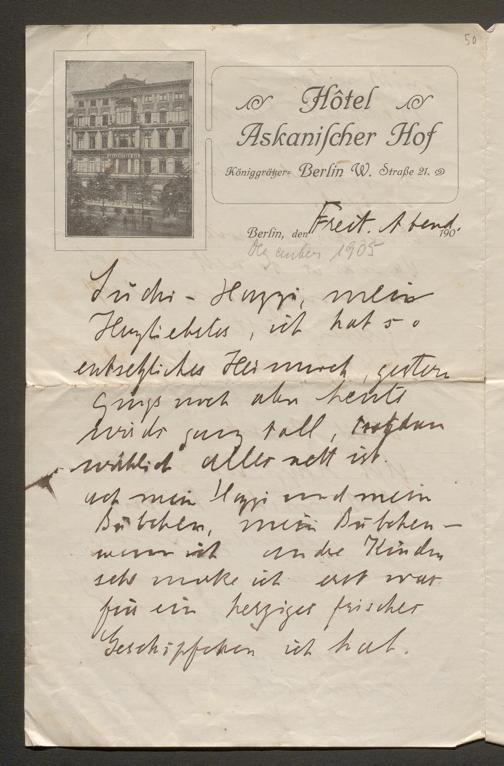 50
Hôtel
Askanischer Hof
Königgrätzer- Berlin W. Straße 21.
Berlin, den Freit. Abend. 190
Dezember 1905
mein
Herzliebstes, ich hab so
entsetzliches Heimweh, gestern
gings noch aber heute
wirds ganz toll, trotzdem
wirklich alles nett ist.
ach mein Hazzi und mein
Bübchen, mein Bübchen –
wenn ich andre Kinder
seh merke ich erst was
für ein herziges frisches
Geschöpfchen ich hab.